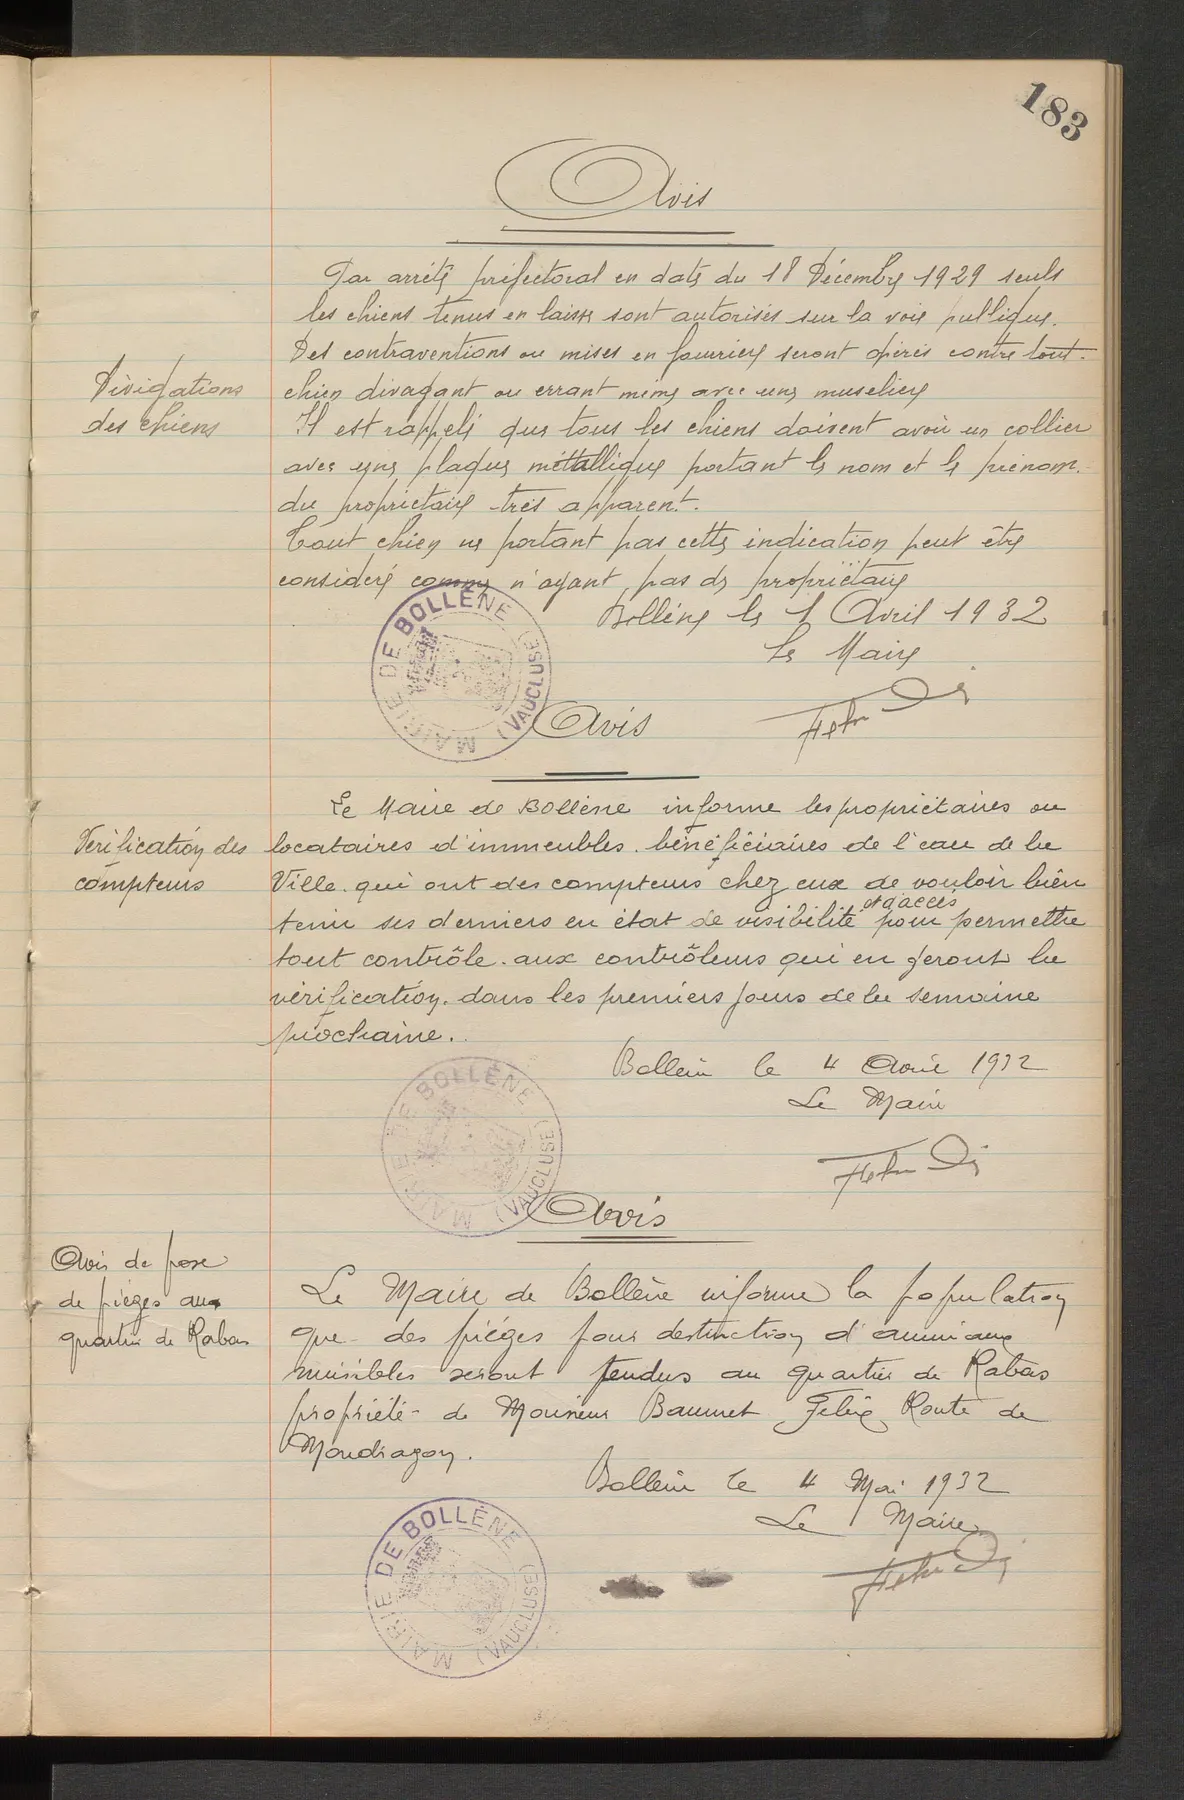 183
Avis
Par arrêté préfectoral en date du 18 Décembre 1929 seuls
les chiens tenus en laisse sont autorisés sur la voie publique.
Des contraventions ou mises en fourrière seront opérés contre tout
Divigations
des chiens
chien divagant ou errant même avec une muselière
Il est rappelé que tous les chiens doivent avoir un collier
avec une plaque métallique portant le nom et le prénom
du propriétaire très apparent.
Tout chien ne portant pas cette indication peut être
considéré comme n'ayant pas de propriétaire
Bollène le 1 Avril 1932
Le Maire
MAIRIE DE BOLLÈNE (VAUCLUSE)
Avis
Le Maire de Bollène informe les propriétaires ou
Vérification des
compteurs
locataires d'immeubles. bénéficiaires de l'eau de la
Ville. qui ont des compteurs chez eux de vouloir bien
tenir ses derniers en état de visibilité et d'accès pour permettre
tout contrôle. aux contrôleurs qui en feront la
vérification. dans les premiers jours de la semaine
prochaine.
Bollène le 4 Avril 1932
Le Maire
MAIRIE DE BOLLÈNE (VAUCLUSE)
Avis
Avis de pose
de pièges au
quartier de Rabas
Le Maire de Bollène informe la population
que des pièges pour destruction d'animaux
nuisibles seront tendus au quartier de Rabas
propriété de Monsieur Baumet Félix Route de
Mondragon.
Bollène le 4 Mai 1932
Le Maire
MAIRIE DE BOLLÈNE (VAUCLUSE)